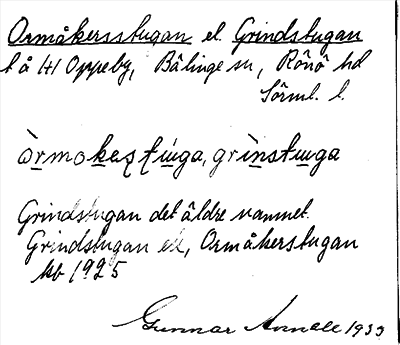 Ormåkersstugan el. Grindstugan
t å 1+1 Oppeby, Bälinge sn, Rönö hd
Sörml. l.
òrmokeʂʈùga, grìnstùga
Grindstugan det äldre namnet.
Grindstugan el, Ormåkerstugan
kb 1925
Gunnar 1933